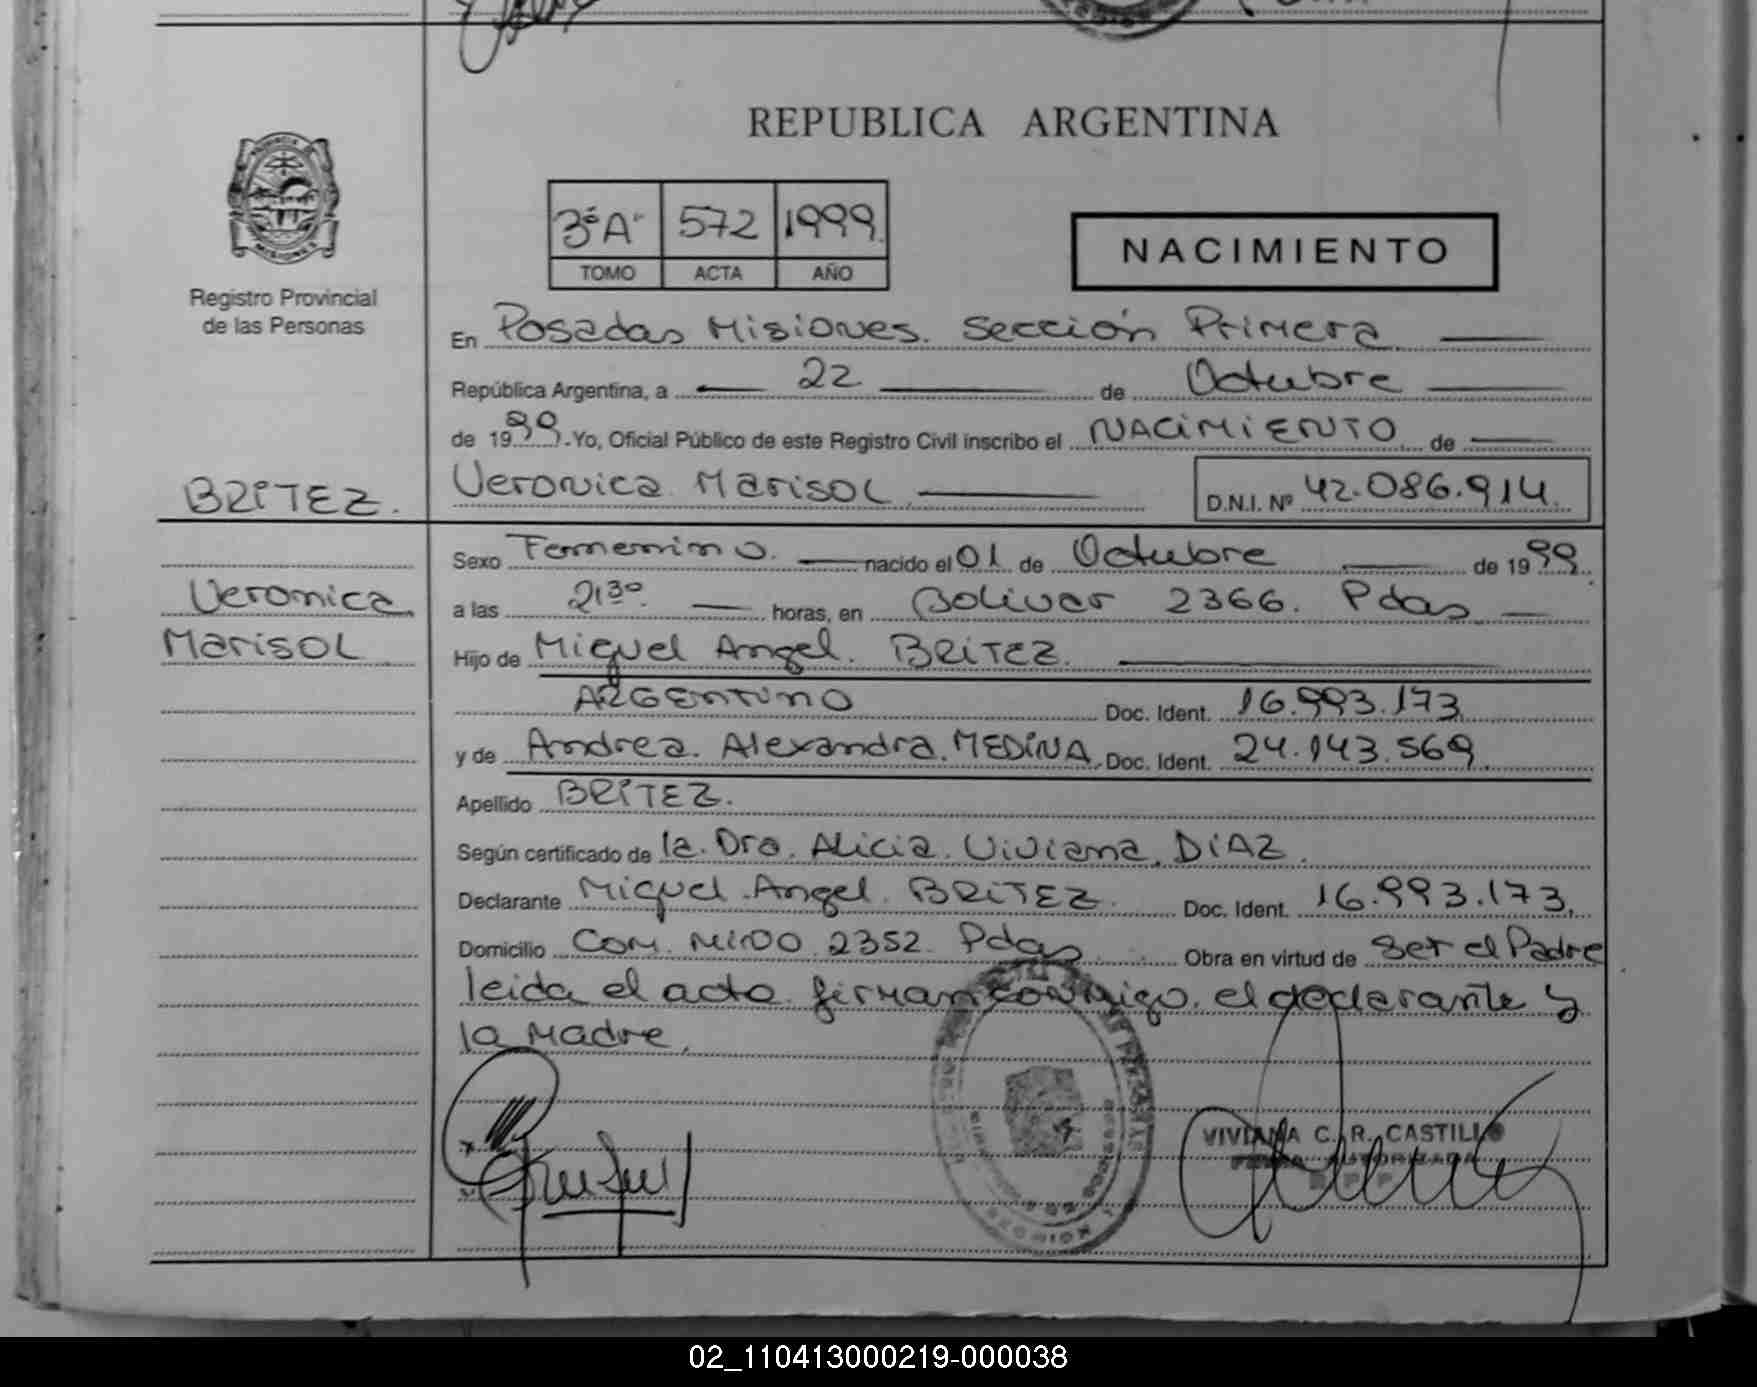 REPUBLICA ARGENTINA
3º"A" 572 1999.
TOMO ACTA AÑO
NACIMIENTO
Registro Provincial
de las Personas
En Posadas Misiones. Sección Primera
República Argentina, a 22 de Octubre
de 1999. Yo, Oficial Público de este Registro Civil inscribo el NACIMIENTO de
BRITEZ.
Veronica Marisol D.N.I. Nº 42.086.914.
Veronica
Marisol
Sexo Femenino. nacido el 01 de Octubre de 1999
a las 21³⁰ horas, en Bolivar 2366. Pdas
Hijo de Miguel Angel. BRITEZ.
ARGENTINO Doc. Ident. 16.993.173
y de Andrea. Alexandra. MEDINA Doc. Ident. 24.143.569
Apellido BRITEZ.
Según certificado de la. Dra. Alicia. Viviana. DIAZ.
Declarante Miguel Angel. BRITEZ. Doc. Ident. 16.993.173.
Domicilio 2352. Pdas Obra en virtud de ser el Padre
leida el acta firman conmigo. el declarante y
la Madre.
VIVIANA C. R. CASTILLO
FIRMA AUTORIZADA
02_110413000219-000038